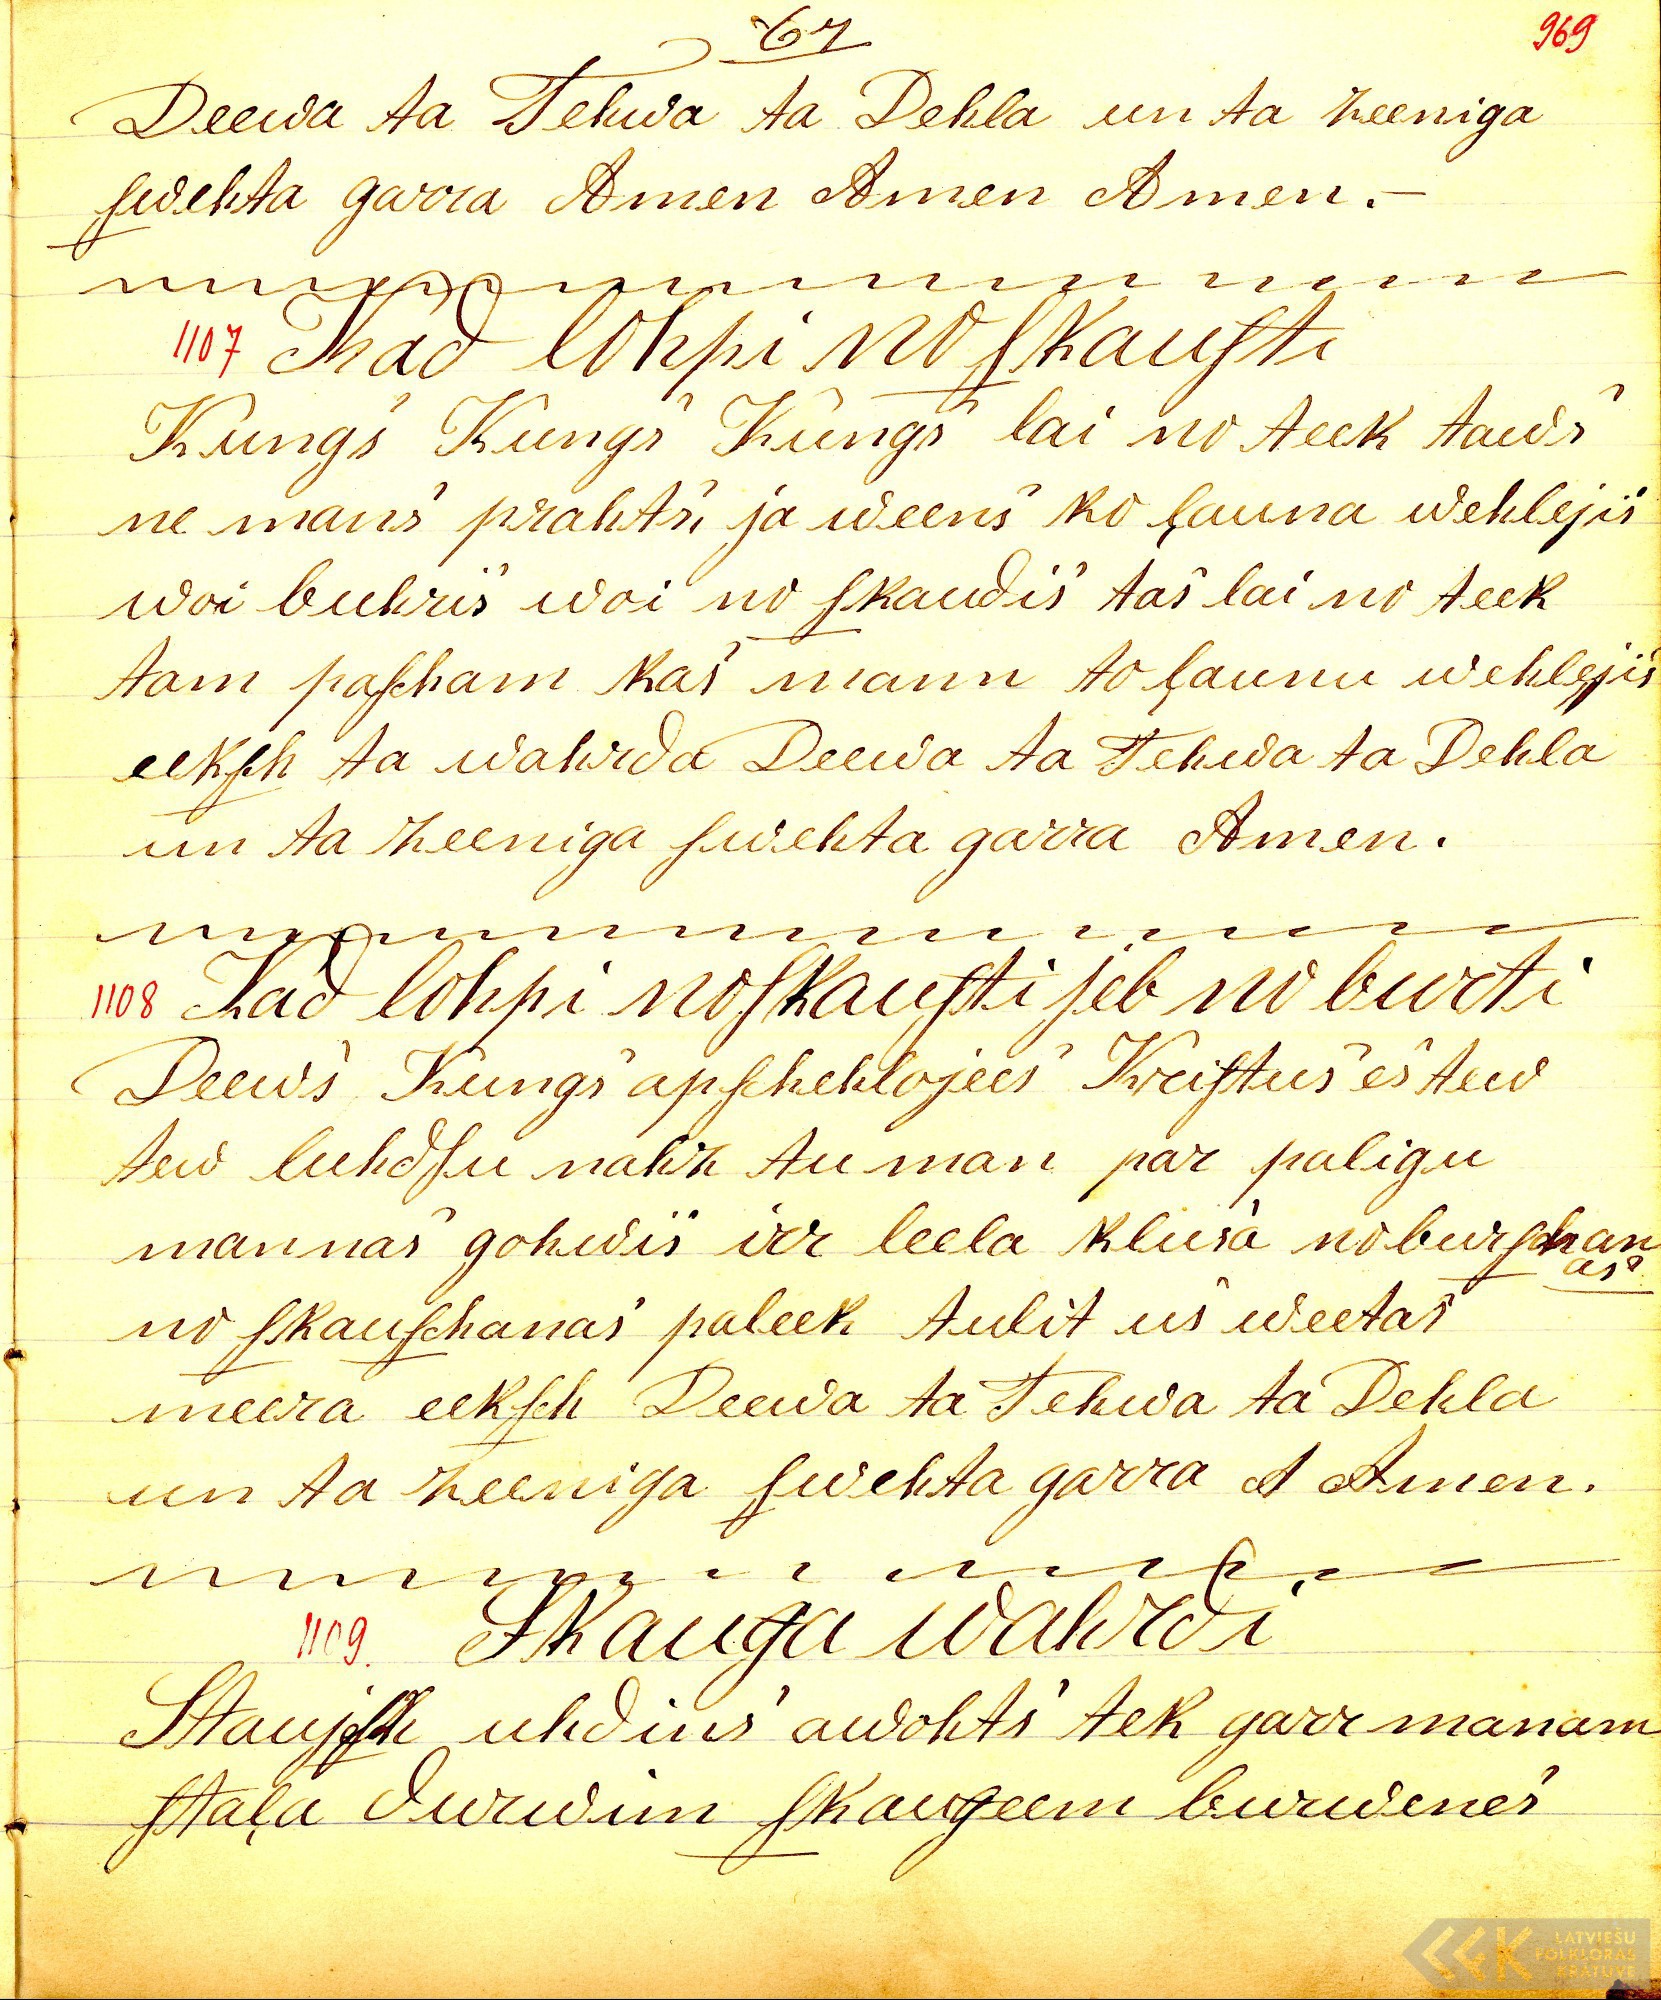 67
969
Deewa ta Tehwa ta Dehla un ta zeeniga
ſwehta garra Amen Amen Amen.—
1107 Kad lohpi noſkauſti
Kungs Kungs Kungs lai no teek taws
ne mans prahts, ja weens ko launa wehlejis
woi buhris woi no ſkaudis tas lai no teek
tam paſcham kas mann to launu wehlejis
eekſch ta wahrda Deewa ta Tehwa ta Dehla
un ta zeeniga ſwehta garra Amen.
1108 Kad lohpi noſkauſti jeb no burti
Deews Kungs apſchehlojees Kriſtus es tew
tew luhdſu nahz tu man par paligu
mannas gohwis irr leela klusa noburſchan
as
no ſkauſchanas paleek tulit us weetas
meera eekſch Deewa ta Tehwa ta Dehla
un ta zeeniga ſwehta garra A Amen.
1109. Skauga wahrdi
uhdins awohts tek garr manam
ſtaļa durwim ſkaugeem burwenes
LATVIEŠU
FOLKLORAS
KRĀTUVE